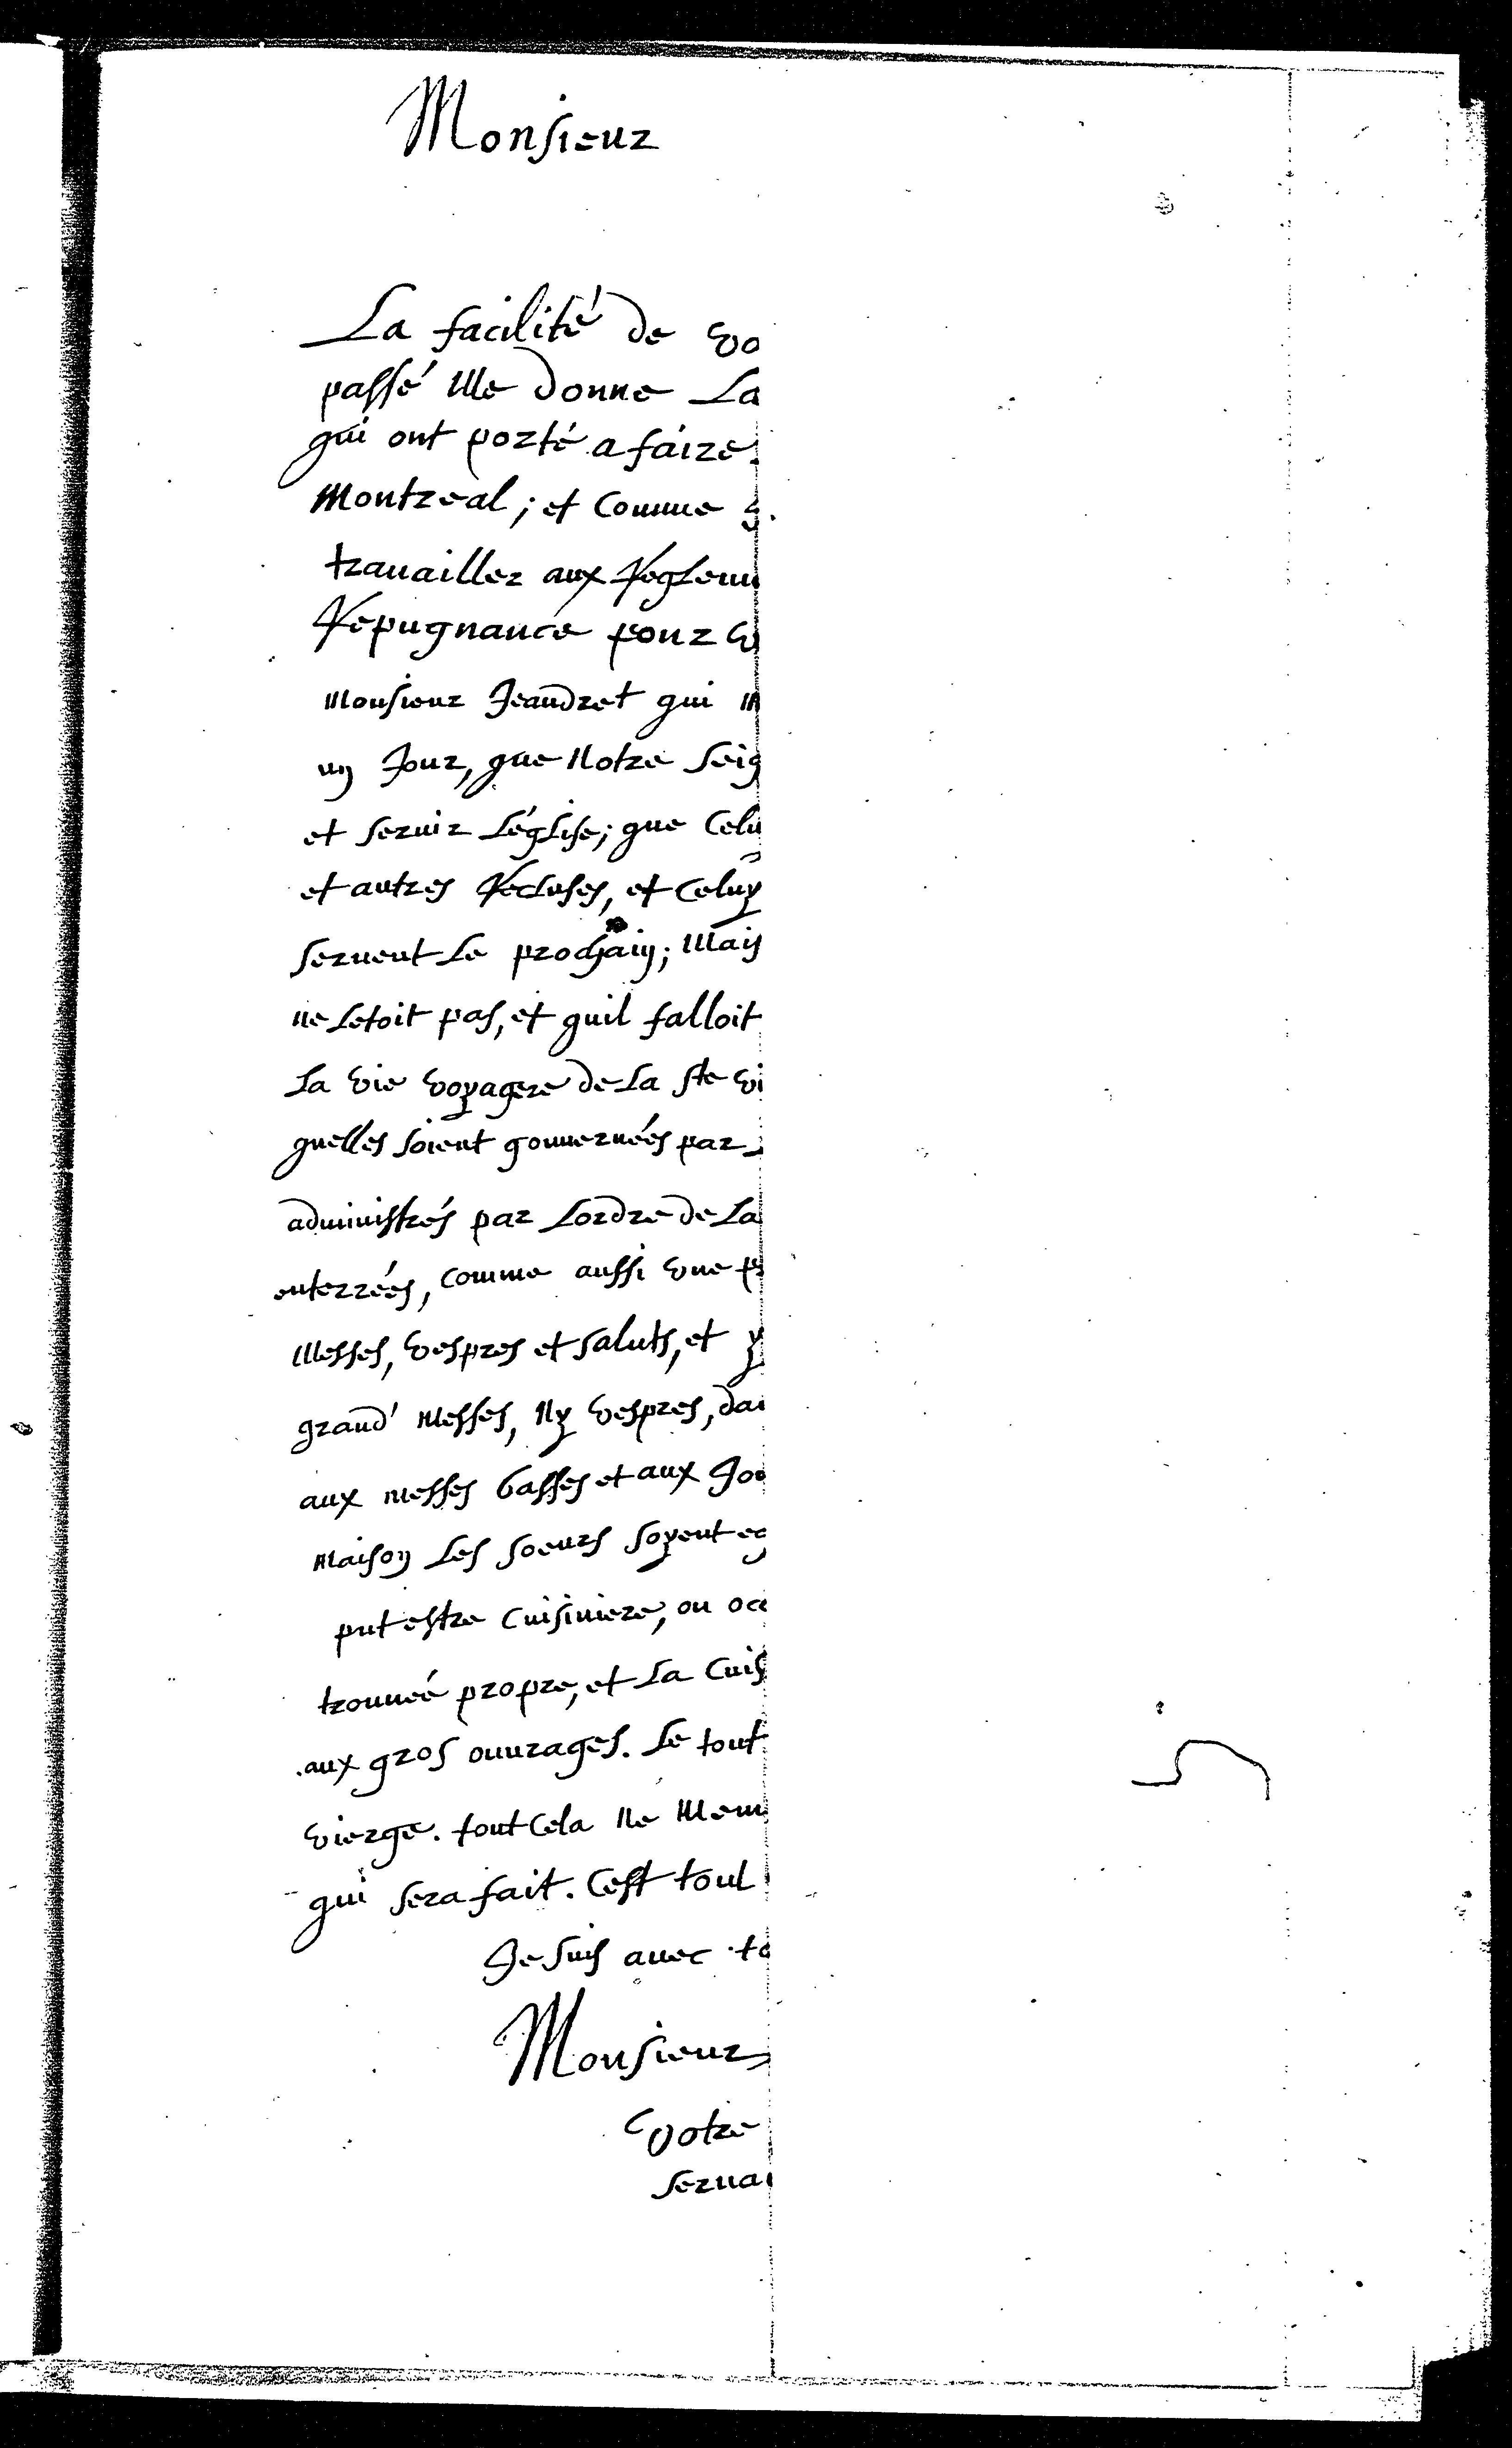 Monsieur
La facilité de vo
passé Me donne La
qui ont porté a faire
Montreal; et Comme
travailler aux Reglem
Repugnance pour v
Monsieur Jeandret qui m
un Jour, que Notre Seig
et servir Léglise; que Celu
et autres Recluses, et Celuy
servent Le prochain; Mais
ne Letoit pas, et quil falloit
La vie voyagere de La ste vi
quelles soient gouvernées par
administrés par Lordre de La
enterrées, comme aussi vne p
Messes, vespres et saluts, et y
grand' Messes, Ny vespres, da
aux Messes basses et aux Jo
Maison Les soeurs soyent eg
put estre Cuisiniere, ou oc
trouvée propre, et La Cuis
aux gros ouvrages. Le tout
vierge. tout Cela Ne Mem
qui sera fait. Cest tout
Je suis avec to
Monsieur
Votre
serva